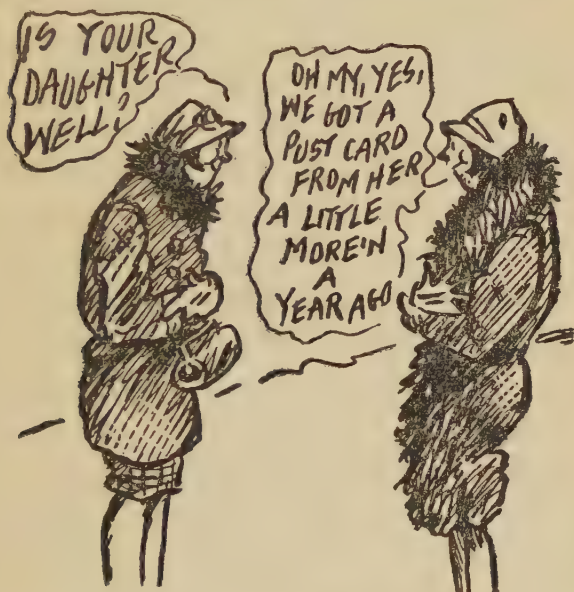 IS YOUR
DAUGHTER
WELL?
OH MY, YES,
WE GOT A
PUST CARD
FROM HER
A LITTLE
MORE'N
A
YEAR AGO